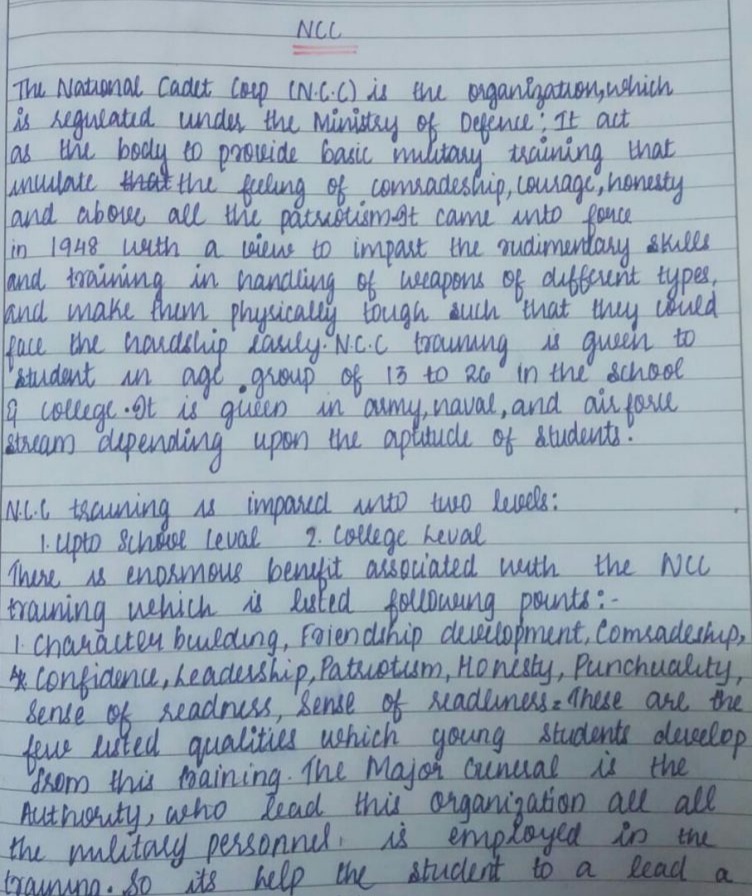 NCC
The National Cadet Corp (N.C.C) is the organization, which
is regulated under the Ministry of Defence; It act
as the body to provide basic military training that
inculate that the feeling of comradeship, courage, honesty
and above all the patriotism. It came into force
in 1948 with a view to impart the rudimentary skills
and training in handling of weapons of different types,
and make them physically tough such that they could
face the hardship easily. N.C.C training is given to
student in age group of 13 to 26 in the school
& college. It is given in army, naval, and air force
stream depending upon the aptitude of students.
N.C.C training is impared into two levels:
1. Upto School Leval 2. College Leval
There is enormous benefit associated with the NCC
training which is listed following points:-
1. Character building, Friendship development, Comradeship,
Confidence, Leadership, Patriotism, Honesty, Punchuality,
Sense of readness, Sense of readiness = These are the
few listed qualities which young students develop
from this training. The Major General is the
Authority, who lead this organization all all
the military personnel. is employed in the
training. So its help the student to a lead a